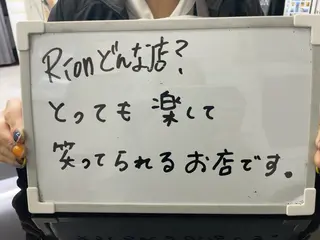 Rionどんな店?
とっても楽して
笑ってられるお店です。